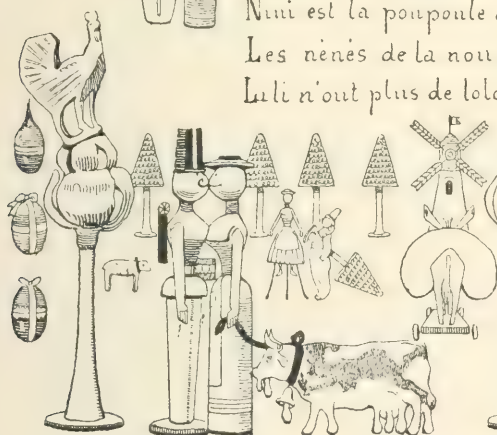 Nini est la poupoule
Les nénés de la nou
Lili n'out plus de lolo